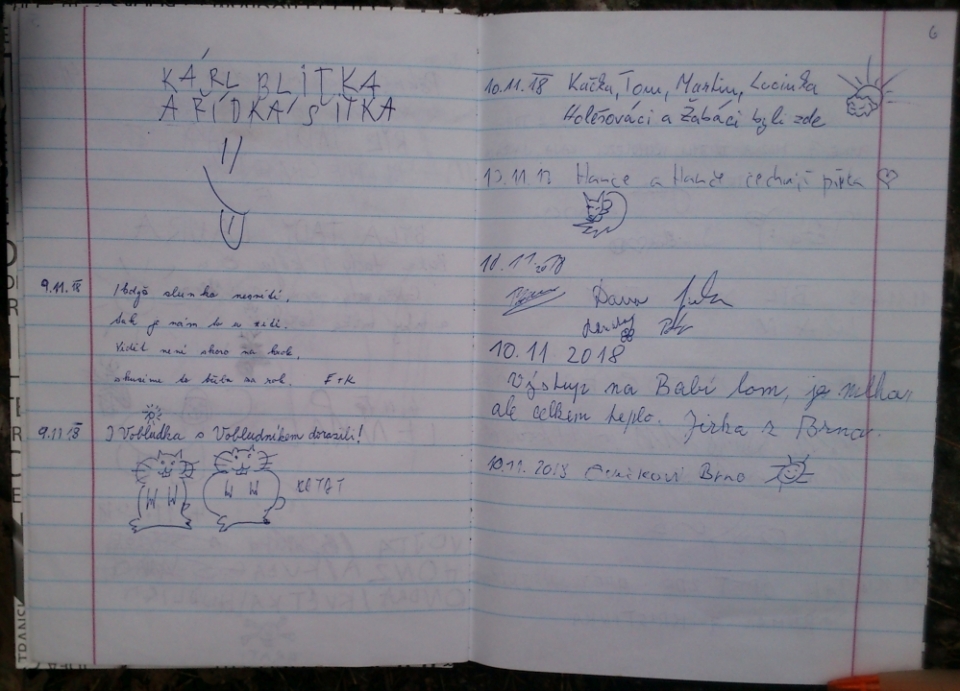 KÁRL BLITKA
A ŘÍDKÁ SÍTKA
9.11.18 I když slunko nesvítí,
tak je nám to u
Vidět není skoro na krok,
zkusíme to třeba za rok. F+K
9.11.18 I Vobludka s Vobludníkem dorazili!
6
10.11.18 Kačka, Tom, Martin, Lucinka
Holešováci a Žabáci byli zde
Hanče a Hanče
10.11.2018
10.11 2018
Výstup na Babí lom, je mlha,
ale celkem teplo. Jirka z Brna.
10.11.2018 Brno